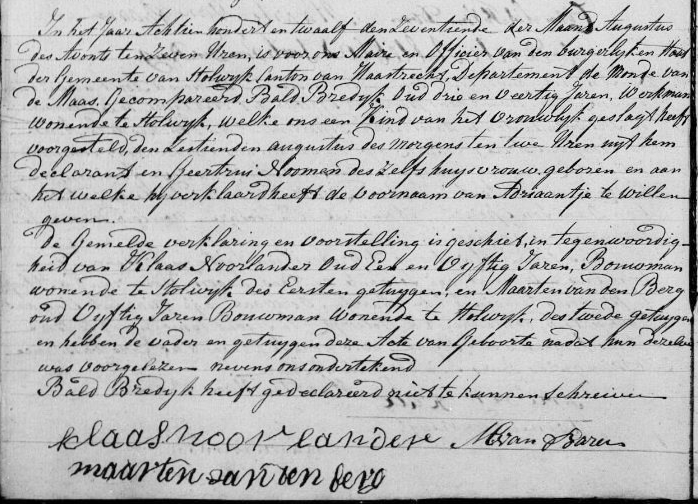 In het Jaar Achtien hondert en twaalf den Zeventiende der Maand Augustus
des Avonts ten Zeven Uren, is voor ons Maire en Officier van den burgerlyken
der Gemeente van Stolwyk Canton van Haastrecht, Departement de Monde van
de Maas. Gecompareerd Bald Bredyk Oud drie en veertig Jaren, Werkman
wonende te Stolwyk, welke ons een Kind van het vrouwlyk geslagt heeft
voorgesteld, den Zestienden augustus des morgens ten twe Uren uyt hem
declarant en Geertrui Nooman des zelfs huysvrouw. geboren en aan
het welke hy verklaard heeft de voornaam van Adriaantje te willen
geven.
de Gemelde verklaring en voorstelling is geschiet, in tegenwoordig-
heid van Klaas Noorlander Oud Een en Vyftig Jaren, Bouwman
wonende te Stolwyk des Eersten getuygen, en Maarten van den Berg
oud Vyftig Jaren Bouwman wonende te Stolwyk, des twede getuygen
en hebben de vader en getuygen deze Acte van Geboorte nadat hun dezelve
was voorgelezen nevens ons ondertekend
Bald Bredyk heeft gedeclareerd niet te kunnen schreiven
klaas noorlander
maarten van den berg